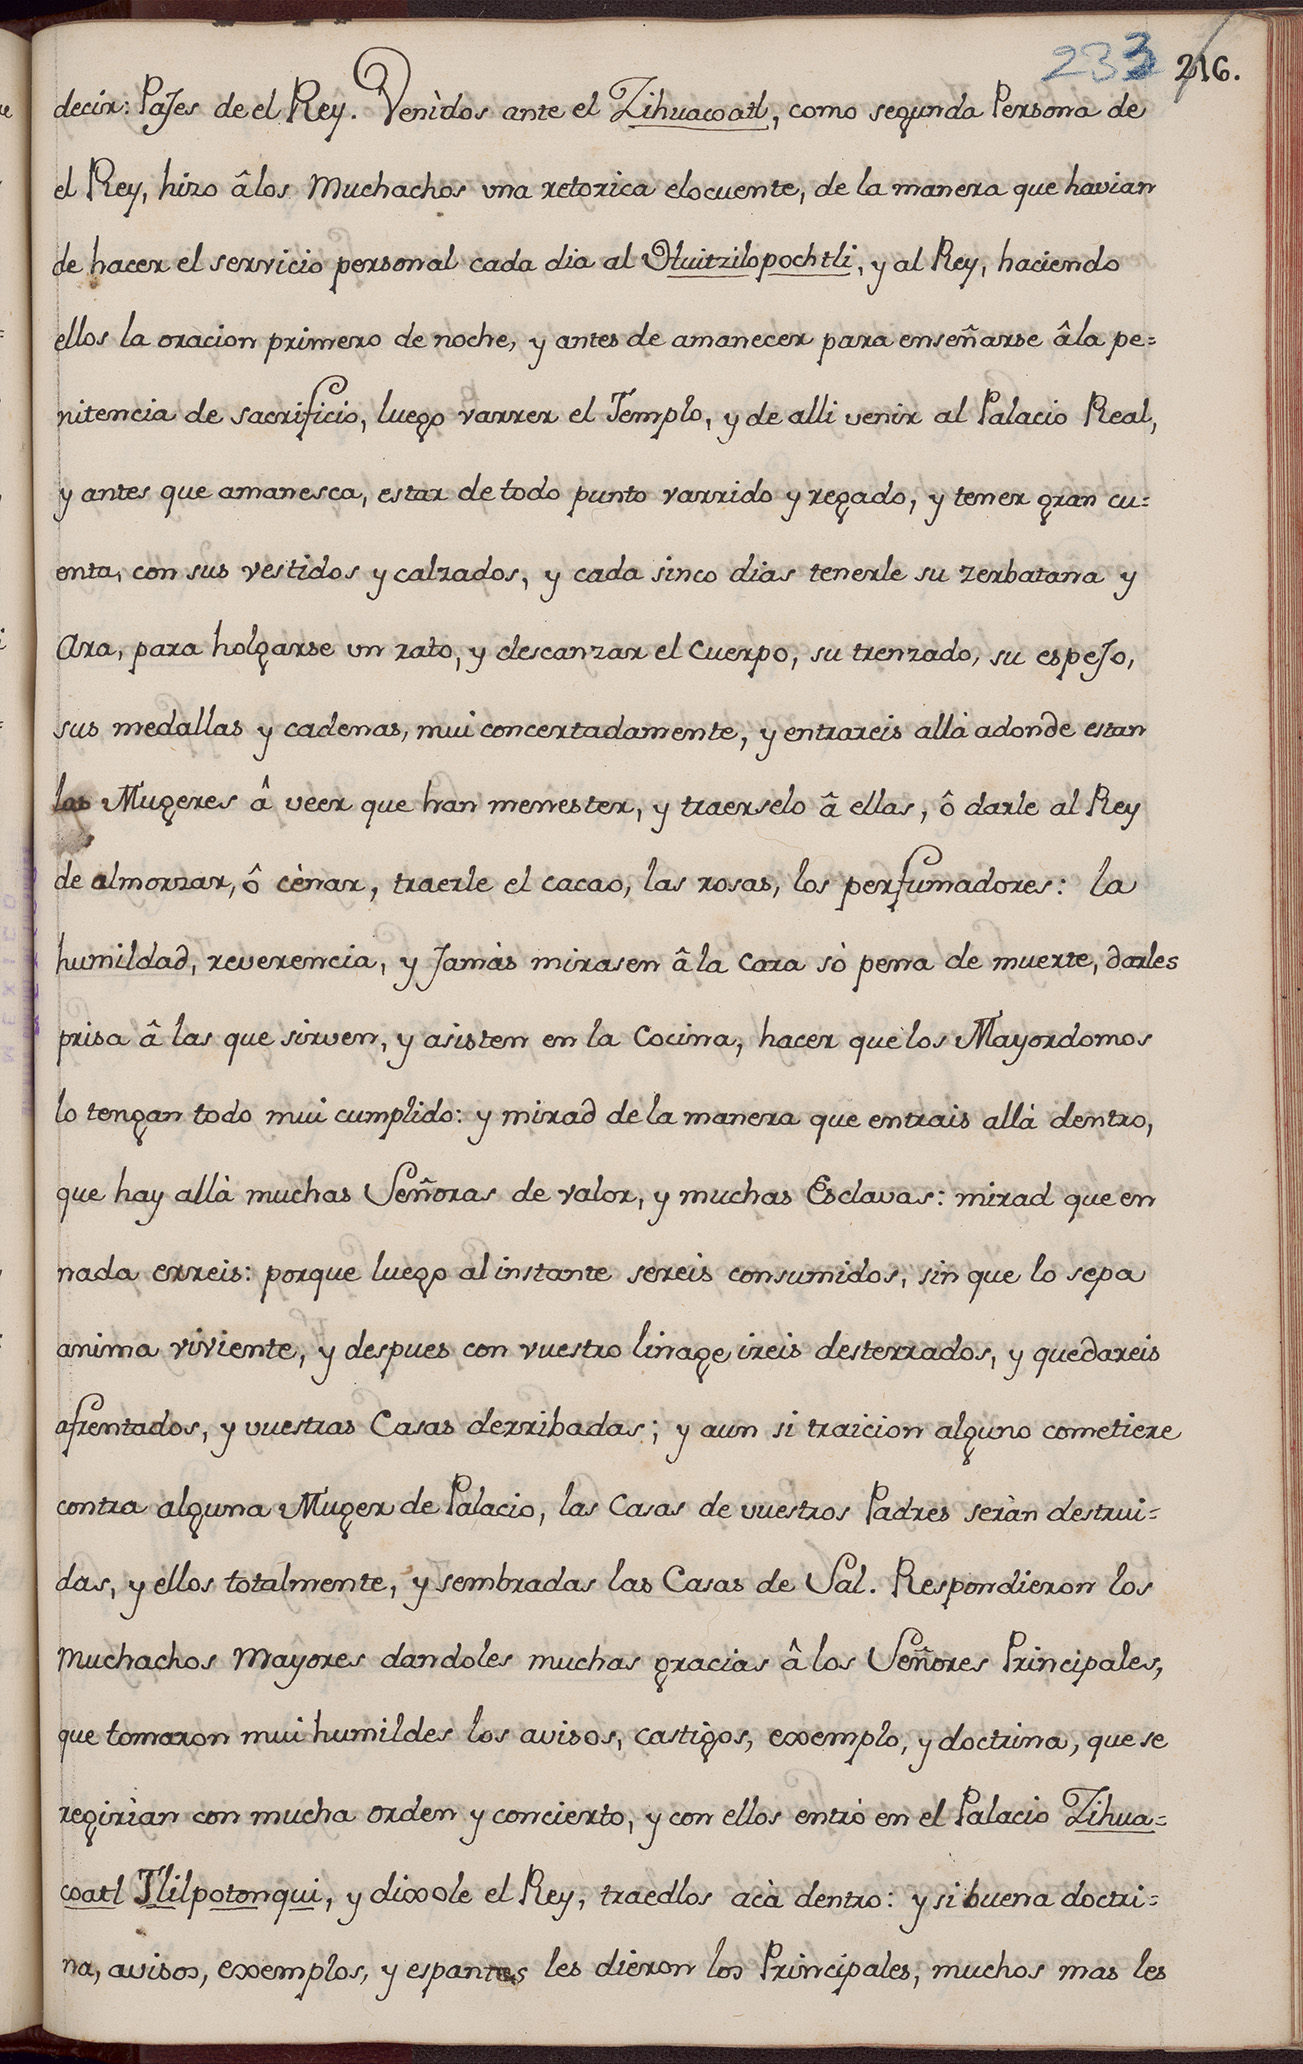 233 216.
decir: Pajes de el Rey. Venìdos ante el Zihuacoatl, como segunda Persona de
el Rey, hizo âlos Muchachos vna retorica elocuente, de la manera que havian
de hacer el servicio personal cada dia al Huitzilopochtli, y al Rey, haciendo
ellos la oracion primero de noche, y antes de amanecer para enseñarse âla pe=
nitencia de sacrificio, luego varrer el Templo, y de alli venir al Palacio Real,
y antes que amanesca, estar de todo punto varrido y regado, y tener gran cu=
enta, con sus vestidos y calzados, y cada sinco dias tenerle su zerbatana y
Ara, para holgarse un rato, y descanzar el Cuerpo, su trenzado, su espejo,
sus medallas y cadenas, mui concertadamente, y entrareis allà adonde estan
las Mugeres â veer que han menester, y traerselo â ellas, ô darle al Rey
de almorzar, ô cènar, traerle el cacao, las rosas, los perfumadores: la
humildad, reverencia, y Jamàs mirasen âla Cara sò pena de muerte, darles
prisa â las que sirven, y asisten en la Cocina, hacer que los Mayordomos
lo tengan todo mui cumplido: y mirad de la manera que entrais allà dentro,
que hay allà muchas Señoras de valor, y muchas Esclavas: mirad que en
nada erreis: porque luego al instante sereis consumidos, sin que lo sepa
anima viviente, y despues con vuestro linage ireis desterrados, y quedareis
afrentados, y vuestras Casas derribadas; y aun si traicion alguno cometiere
contra alguna Muger de Palacio, las Casas de vuestros Padres seràn destrui=
das, y ellos totalmente, y sembradas las Casas de Sal. Respondieron los
Muchachos Mayores dandoles muchas gracias â los Señores Principales,
que tomaron mui humildes los avisos, castigos, exemplo, y doctrina, que se
regirìan con mucha orden y concierto, y con ellos entrò en el Palacio Zihua=
coatl Tlilpotonqui, y dixole el Rey, traedlos acà dentro: y si buena doctri=
na, avisos, exemplos, y espantos les dieron los Principales, muchos mas les